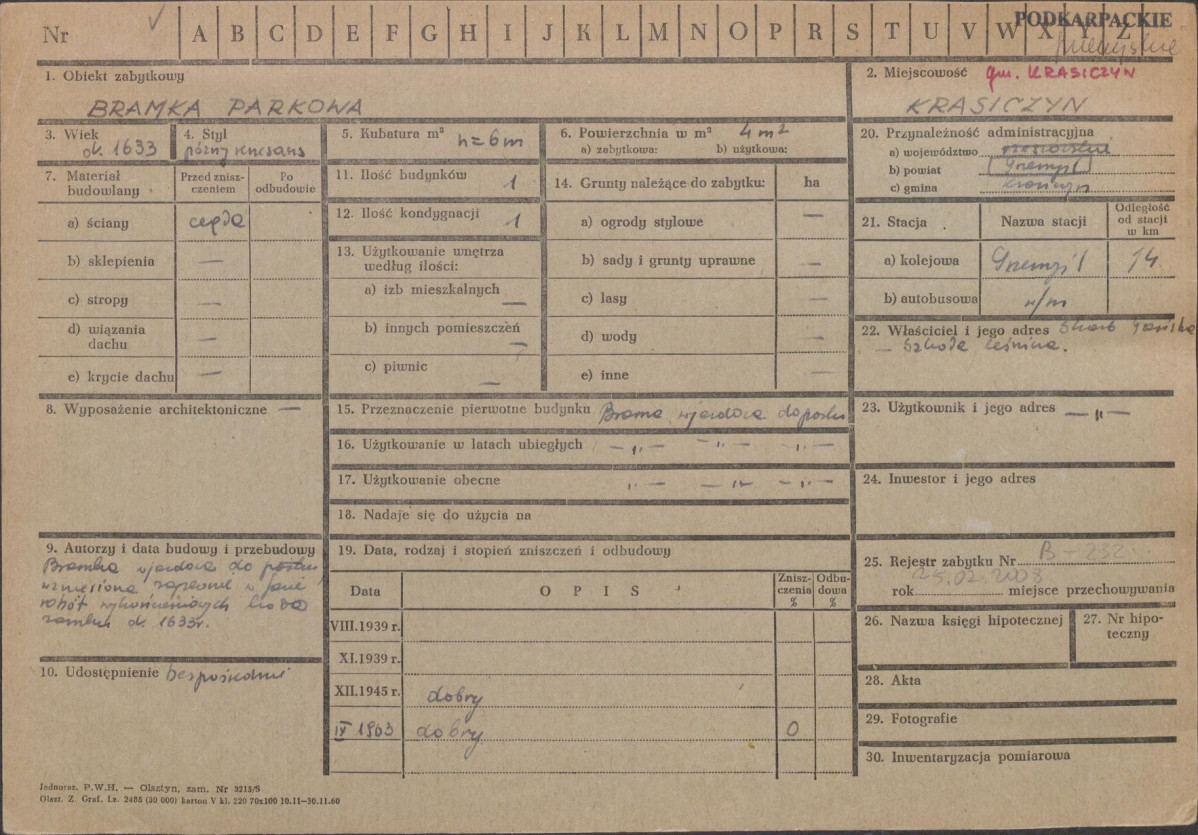 Nr A B C D E F G H I J K L M N O P R S T U V W X Y Z
PODKARPACKIE
1. Obiekt zabytkowy
BRAMKA PARKOWA
2. Miejscowość gm. KRASICZYN
KRASICZYN
3. Wiek
d. 1633
4. Styl
późny renesans
5. Kubatura m³ h=6m
6. Powierzchnia w m² 4 m²
a) zabytkowa: b) użytkowa:
7. Materiał budowlany
Przed zniszczeniem
Po odbudowie
a) ściany cegła
b) sklepienia —
c) stropy —
d) wiązania dachu —
e) krycie dachu —
8. Wyposażenie architektoniczne —
9. Autorzy i data budowy i przebudowy
Bramka wjazdowa do parku
wzniesiona zapewne w fazie
robót wykończeniowych
zamku d. 1633r.
10. Udostępnienie bezpośrednie
11. Ilość budynków 1
12. Ilość kondygnacji 1
13. Użytkowanie wnętrza
według ilości:
a) izb mieszkalnych —
b) innych pomieszczeń —
c) piwnic —
14. Grunty należące do zabytku: ha
a) ogrody stylowe —
b) sady i grunty uprawne —
c) lasy —
d) wody —
e) inne —
15. Przeznaczenie pierwotne budynku Brama wjazdowa do parku
16. Użytkowanie w latach ubiegłych —„— —„— —„—
17. Użytkowanie obecne „— —„— —„—
18. Nadaje się do użycia na
19. Data, rodzaj i stopień zniszczeń i odbudowy
Data OPIS Zniszczenia % Odbudowa %
VIII.1939 r.
XI.1939 r.
XII.1945 r. dobry
IX 1963 dobry 0
20. Przynależność administracyjna
a) województwo rzeszowskie
b) powiat Przemyśl
c) gmina Krasiczyn
21. Stacja Nazwa stacji Odległość od stacji w km
a) kolejowa Przemyśl 14
b) autobusowa w/m
22. Właściciel i jego adres Skarb Państwa
— Szkoła leśnicza.
23. Użytkownik i jego adres —„—
24. Inwestor i jego adres
25. Rejestr zabytku Nr B-232
25.02.2008
rok miejsce przechowywania
26. Nazwa księgi hipotecznej
27. Nr hipoteczny
28. Akta
29. Fotografie
30. Inwentaryzacja pomiarowa
Jednoraz. P.W.H. — Olsztyn, zam. Nr 3215/S
Olszt. Z. Graf. Lz. 2485 (30 000) karton V kl. 220 70x100 10.11—30.11.60